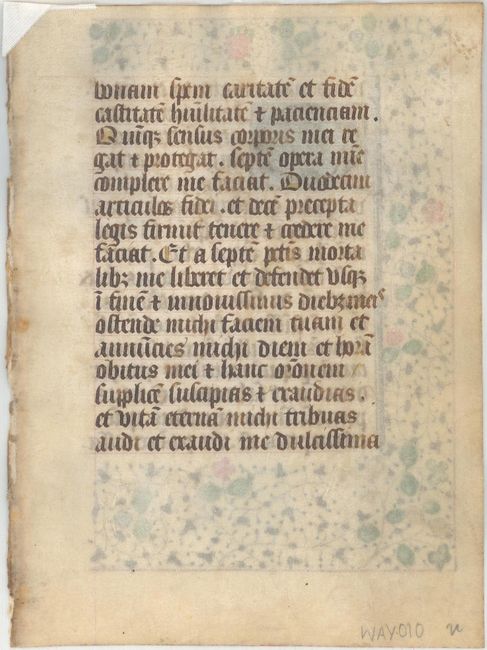 bonam spem caritatē et fidē
castitatē humilitatē ⁊ pacienciam.
Quinqꝫ sensus corporis mei re
gat ⁊ protegat. septē opera mīe
complere me faciat. Duodecim
articulos fidei. et decē precepta
legis firmit tenere ⁊ credere me
faciat. Et a septē pctīs morta
libꝫ me liberet et defendet vsqꝫ
ī finē ⁊ in nouissimis diebꝫ meis
ostende michi faciem tuam et
annuncies michi diem et horā
obitus mei ⁊ hanc orōnem
supplicē suscipias ⁊ exaudias.
et vitā eternā michi tribuas
audi et exaudi me dulcissima
WAY.010